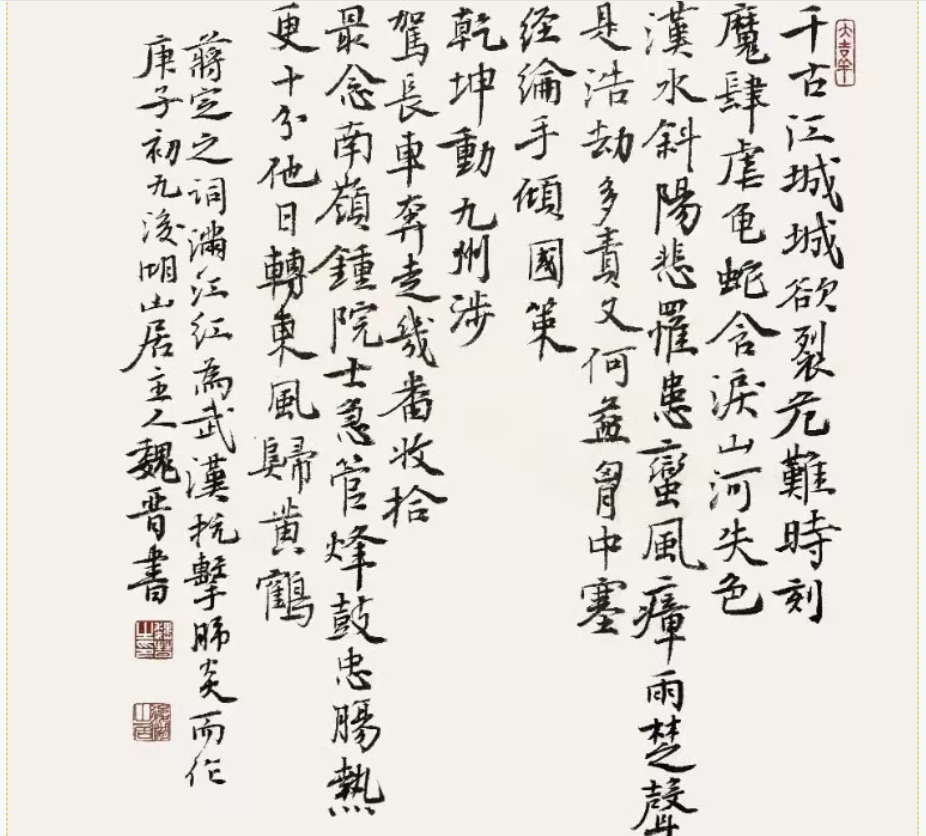 大吉羊
千古江城城欲裂危難時刻
魔肆虐龟蛇含淚山河失色
漢水斜陽悲罹患蠻風瘴雨楚聲
是浩劫多責又何益胷中塞
经綸手傾國策
乾坤動九州涉
駕長車奔走幾番收拾
最念南嶺鍾院士急管烽鼓忠腸熱
更十分他日轉東風歸黄鶴
蔣定之詞滿江红為武漢抗擊肺炎而作
庚子初九後湖山居主人魏晋書